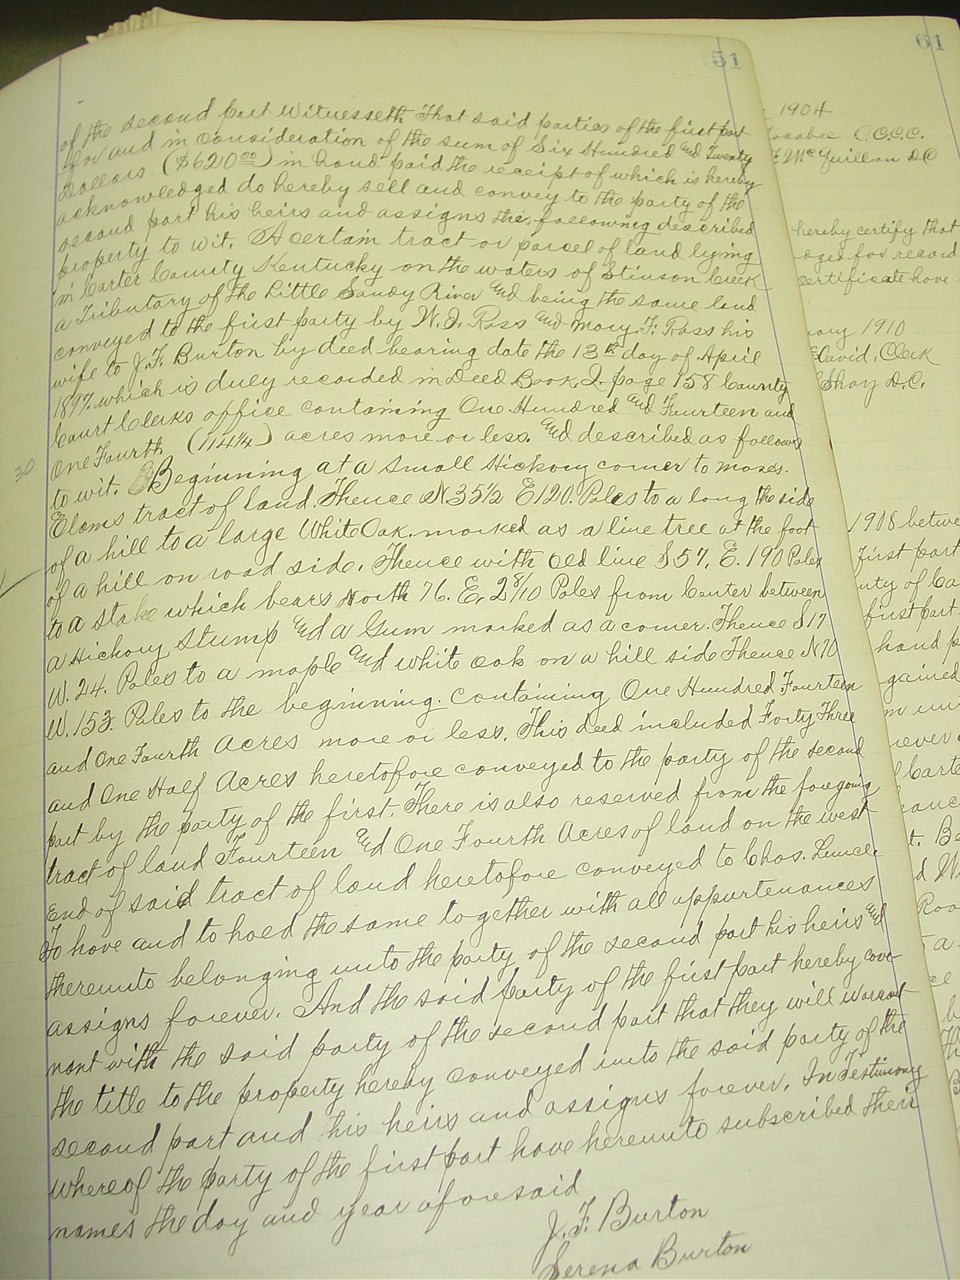 51
of the second part Witnesseth That said parties of the first part
for and in consideration of the sum of Six Hundred and Twenty
Dollars ($620.00) in hand paid the receipt of which is hereby
acknowledged do hereby sell and convey to the party of the
second part his heirs and assigns the following described
property to wit. A certain tract or parcel of land lying
in Carter County Kentucky on the waters of Stinson Creek
a Tributary of the Little Sandy River and being the same land
conveyed to the first party by W.J. Ross and Mary F. Ross his
wife to J.F. Burton by deed bearing date the 13th day of April
1897. which is duley recorded in Deed Book, Q. page 158 County
Court Clerks office containing One Hundred and Fourteen and
One Fourth (114 1/4) acres more or less. and described as follows
30
to wit. Beginning at a small Hickory corner to Moses.
Elams tract of land. Thence N 35 1/2 E 120. Poles to a long the side
of a hill to a large White Oak. marked as a line tree at the foot
of a hill on road side. Thence with old line S 57. E. 190 Poles
to a stake which bears North 76. E, 2 8/10 Poles from Center between
a Hickory Stump and a Gum marked as a corner. Thence S 17
W. 24. Poles to a maple and white oak on a hill side Thence N 70
W. 153. Poles to the beginning. containing One Hundred Fourteen
and One Fourth Acres more or less. This deed included Forty Three
and One Half Acres heretofore conveyed to the party of the second
part by the party of the first. There is also reserved from the foregoing
tract of land Fourteen and One Fourth Acres of land on the west
End of said tract of land heretofore conveyed to Chas. Lunce.
To have and to hoed the same together with all appurtenances
thereunto belonging unto the party of the second part his heirs and
assigns forever. And the said party of the first part hereby cove-
nant with the said party of the second part that they will warrant
the title to the property hereby conveyed unto the said party of the
second part and his heirs and assigns forever. In Testimony
whereof the party of the first part have hereunto subscribed their
names the day and year aforesaid
J. F. Burton
Serena Burton
61
1904
C.C.C.C.
McGuillan DC
hereby certify that
for record
certificate have
1910
David, Clerk
D.C.
1908 betwe
first part
first part
hand p
gained